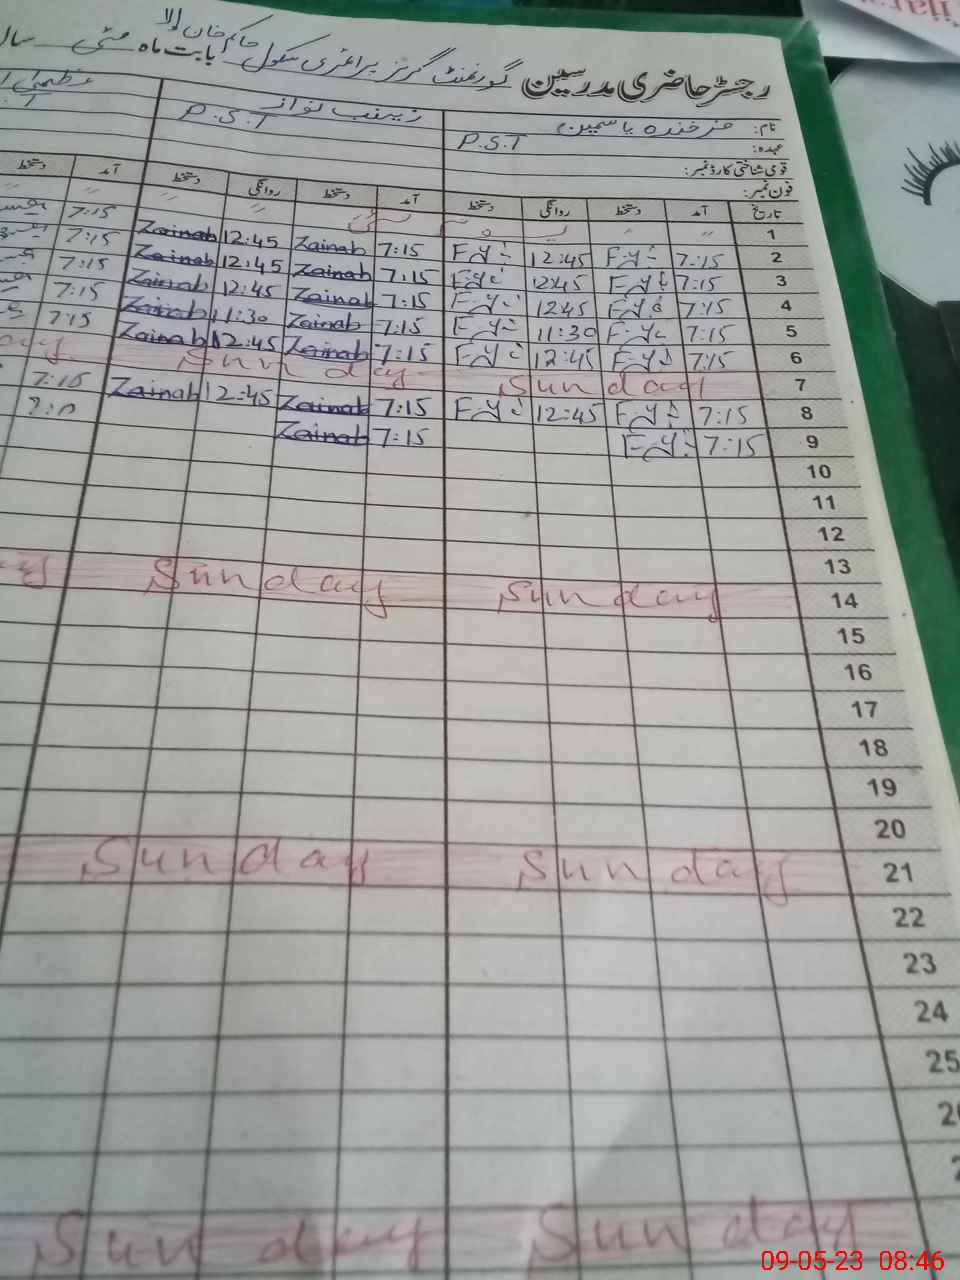 رجسٹر حاضری مدرسین گورنمنٹ گرلز پرائمری سکول حاکم خان والا بابت ماہ مئی سال
نام: فرخندہ یاسمین زینب نواز عظمیٰ
عہدہ: P.S.T P.S.T
قومی شناختی کارڈ نمبر:
فون نمبر:
تاریخ آمد دستخط روانگی دستخط آمد دستخط روانگی دستخط آمد دستخط
1 " " " "
2 7:15 F.Y 12:45 F.Y 7:15 Zainab 12:45 Zainab 7:15
3 7:15 F.Y 12:45 F.Y 7:15 Zainab 12:45 Zainab 7:15
4 7:15 F.Y 12:45 F.Y 7:15 Zainab 12:45 Zainab 7:15
5 7:15 F.Y 11:30 F.Y 7:15 Zainab 11:30 Zainab 7:15
6 7:15 F.Y 12:45 F.Y 7:15 Zainab 12:45 Zainab 7:15
7 Sunday Sunday
8 7:15 F.Y 12:45 F.Y 7:15 Zainab 12:45 Zainab 7:15
9 7:15 F.Y 7:15 Zainab
10
11
12
13
14 Sunday Sunday
15
16
17
18
19
20
21 Sunday Sunday
22
23
24
25
Sunday Sunday
09-05-23 08:46